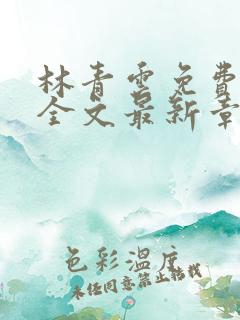 林青云免费
全文最新章
色彩温度
未经同意禁止转载